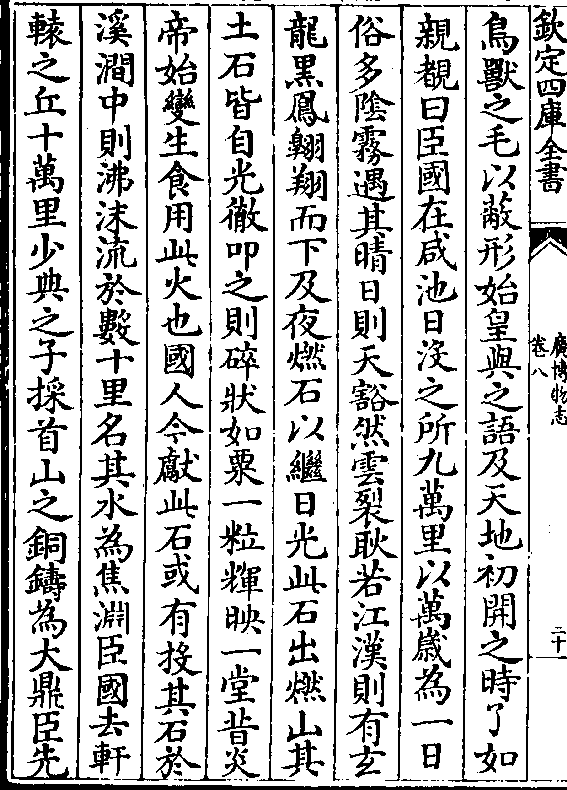 欽定四庫全書
廣博物志
卷八
二十
鳥獸之毛以蔽形始皇與之語及天地初開之時了如
親覩曰臣國在咸池日沒之所九萬里以萬歲為一日
俗多陰霧遇其晴日則天豁然雲裂耿若江漢則有玄
龍黑鳳翺翔而下及夜燃石以繼日光此石出燃山其
土石皆自光徹叩之則碎狀如粟一粒輝映一堂昔炎
帝始變生食用此火也國人今獻此石或有投其石於
溪澗中則沸沫流於數十里名其水為焦淵臣國去軒
轅之丘十萬里少典之子採首山之銅鑄為大鼎臣先